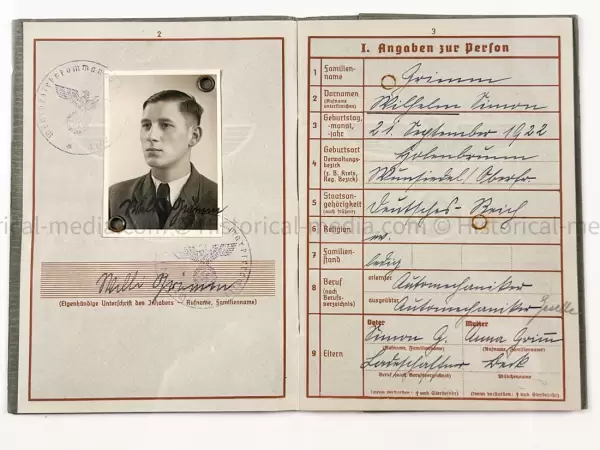 2
Willi Grimm
Willi Grimm
(Eigenhändige Unterschrift des Inhabers — Rufname, Familienname)
3
I. Angaben zur Person
1 Familien-
name
Grimm
2 Vornamen
(Rufname
unterstreichen)
Wilhelm Simon
3 Geburtstag,
-monat,
-jahr
21. September 1922
4 Geburtsort
Verwaltungs-
bezirk
(z. B. Kreis,
Reg. Bezirk)
Holenbrunn
Wunsiedel/Oberfr.
5 Staatsan-
gehörigkeit
(auch frühere)
Deutsches-Reich
6 Religion
ev.
7 Familien-
stand
ledig
8 Beruf
(nach
Berufs-
verzeichnis)
erlernter
Automechaniker
ausgeübter
Automechaniker Geselle
9 Eltern
Vater Mutter
Simon G. Anna Grimm
(Rufname, Familienname) (Rufname, Familienname)
Ladeschaffner Beck
Beruf (nach Berufsverzeichnis) Mädchenname
(wenn verstorben: † und Sterbejahr) (wenn verstorben: † und Sterbejahr)
Historical-media.com © Historical-media.com © Historical-media.com